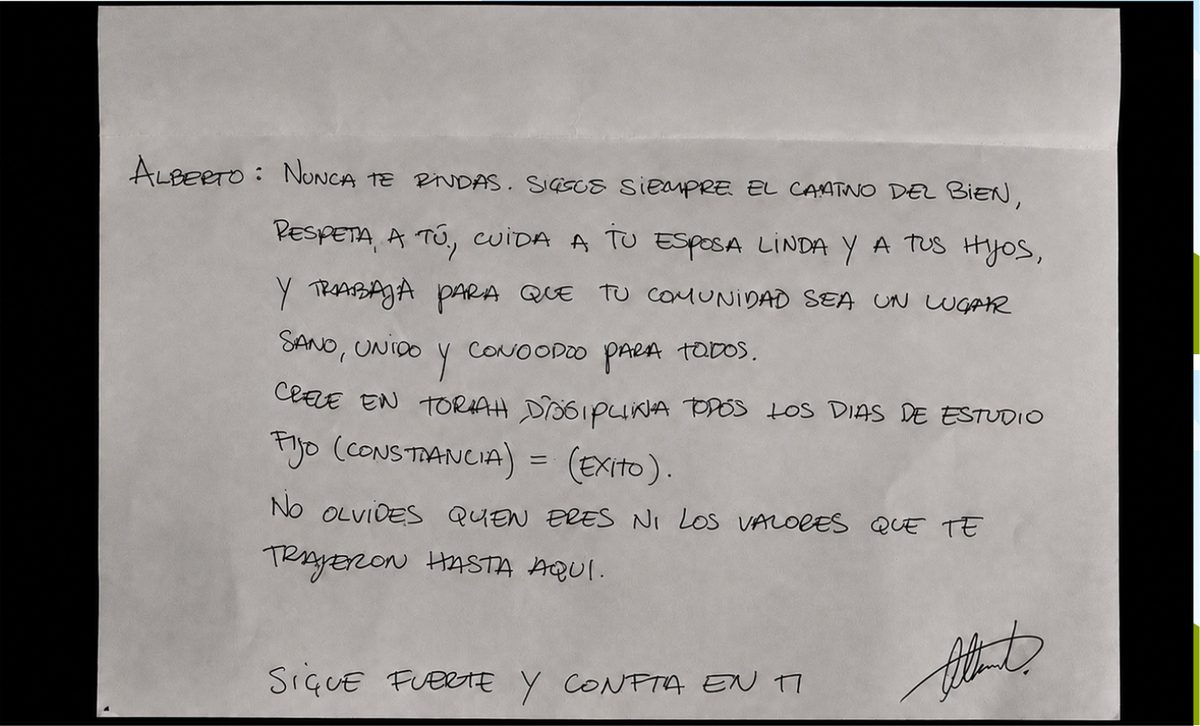 ALBERTO: NUNCA TE RINDAS. SIGUE SIEMPRE EL CAMINO DEL BIEN,
RESPETA A TÚ, CUIDA A TU ESPOSA LINDA Y A TUS HIJOS,
Y TRABAJA PARA QUE TU COMUNIDAD SEA UN LUGAR
SANO, UNIDO Y PARA TODOS.
CRECE EN TORAH DISCIPLINA TODOS LOS DIAS DE ESTUDIO
FIJO (CONSTANCIA) = (EXITO).
NO OLVIDES QUIEN ERES NI LOS VALORES QUE TE
TRAJERON HASTA AQUI.
SIGUE FUERTE Y CONFIA EN TI